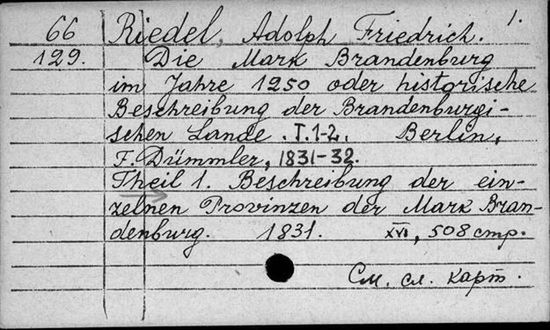 1.
66 Riedel, Adolph Friedrich.
129. Die Mark Brandenburg
im Jahre 1250 oder historische
Beschreibung der Brandenburgi-
schen Lande. T. 1-2. Berlin,
F. Dümmler, 1831-32.
Theil 1. Beschreibung der ein-
zelnen Provinzen der Mark Bran-
denburg. 1831. XVI, 508 стр.
См. сл. карт.